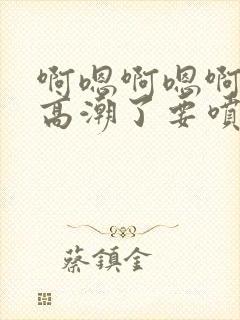 啊嗯啊嗯啊
高潮了要噴
蔡鎮金